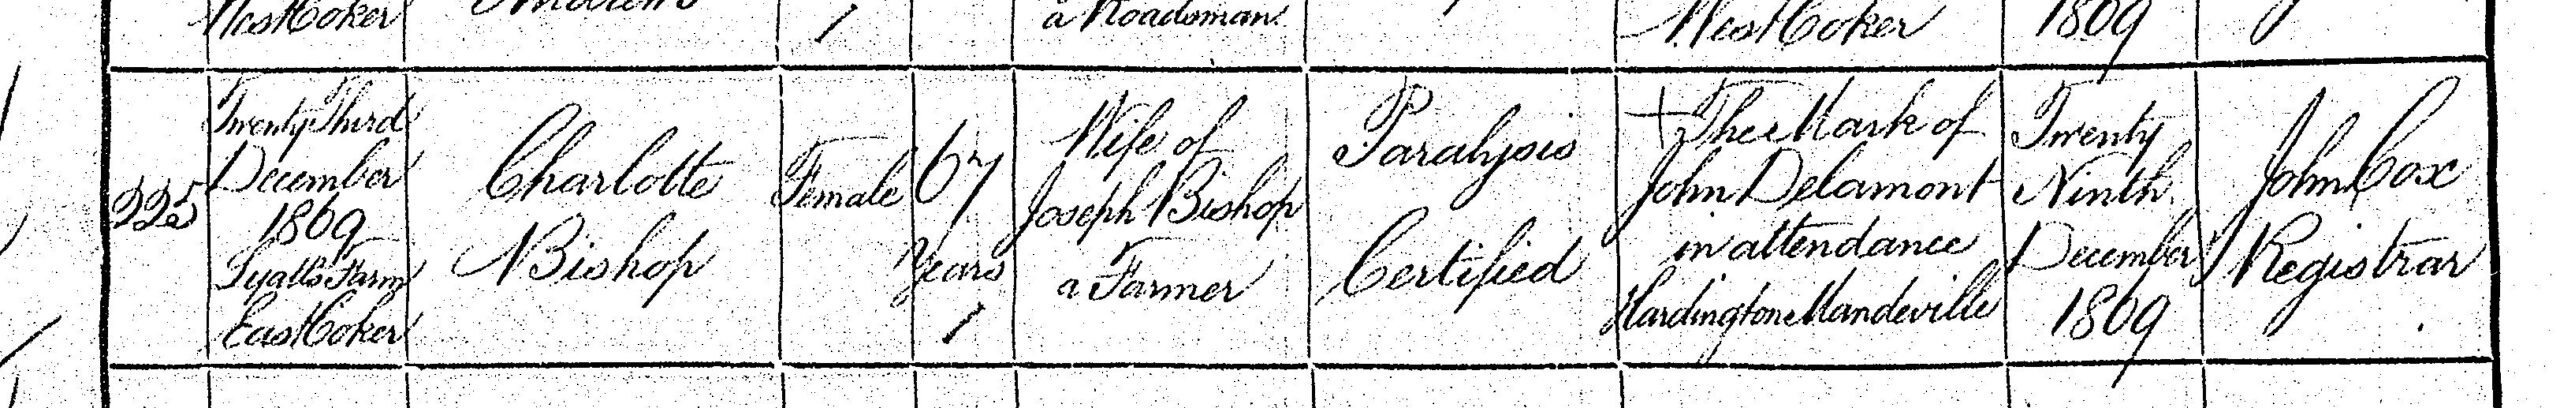 West Coker
a Roadsman
West Coker
1869
225
Twenty Third
December
1869
Lyatts Farm
East Coker
Charlotte
Bishop
Female
67
Years
Wife of
Joseph Bishop
a Farmer
Paralysis
Certified
+ The Mark of
John Delamont
in attendance
Hardington Mandeville
Twenty
Ninth
December
1869
John Cox
Registrar